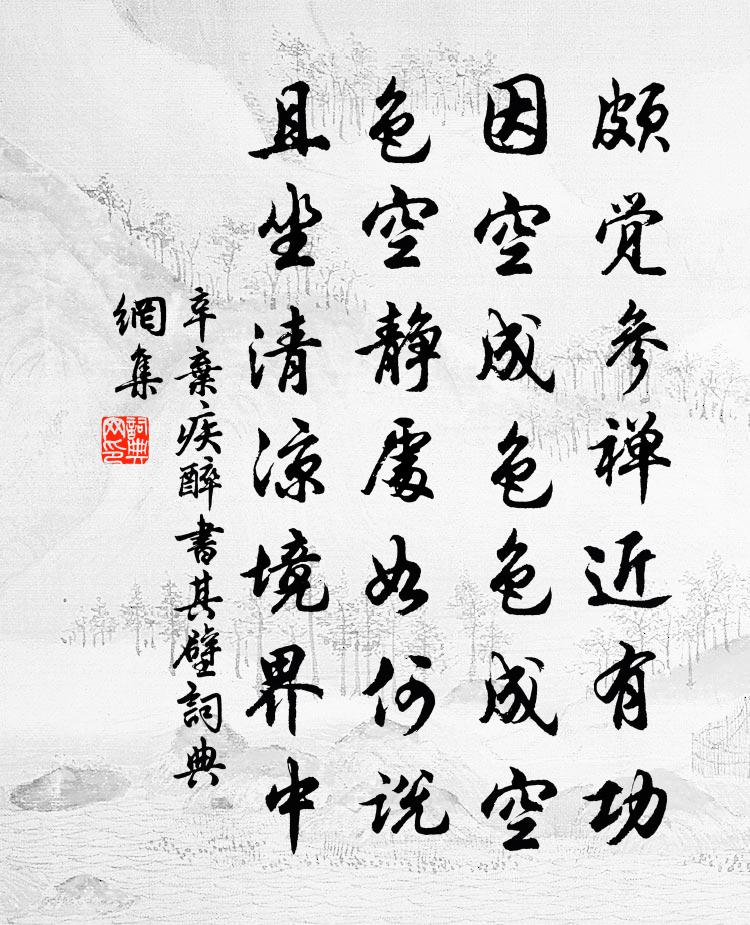 颇觉参禅近有功
因空成色色成空
色空静處如何说
且坐清凉境界中
辛棄疾醉書其壁詞典
網集
詞典网印